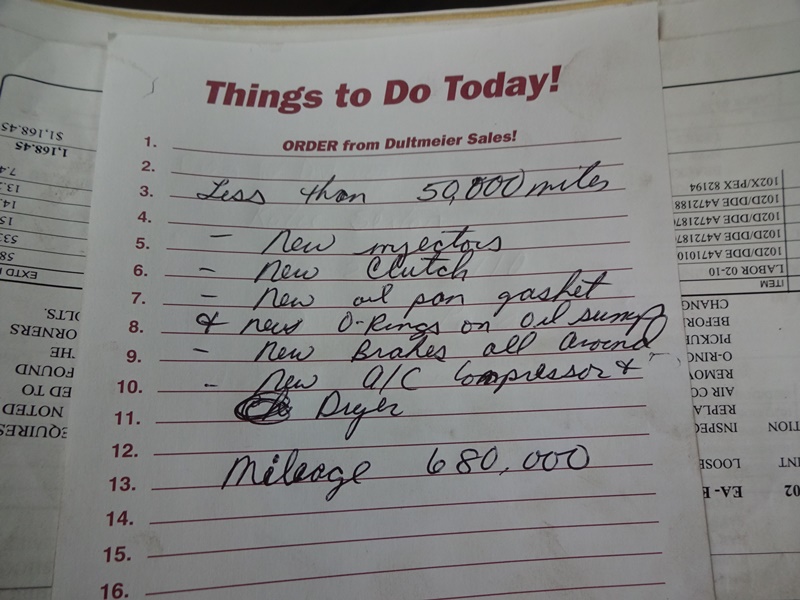 Things to Do Today!
ORDER from Dultmeier Sales!
1.
2.
3. Less than 50,000 miles
4.
5. - new injectors
6. - new Clutch
7. - new oil pan gasket
8. & new O-Rings on oil sump
9. - new Brakes all around
10. - new A/C Compressor &
11. Dryer
12.
13. Mileage 680,000
14.
15.
16.
$1,168.45
1,168.45
EXTD
OLTS.
ORNERS
THE
FOUND
ED TO
NOTED
EQUIRES
102X/PEX 82194
102D/DDE A4721188
102D/DDE A472187
102D/DDE A472187
102D/DDE A471010
LABOR 02-10
ITEM
CHANG
BEFOR
PICKUP
O-RING
REMOV
AIR CO
REPLA
INSPEC
TION
LOOSE
INT
EA-
02